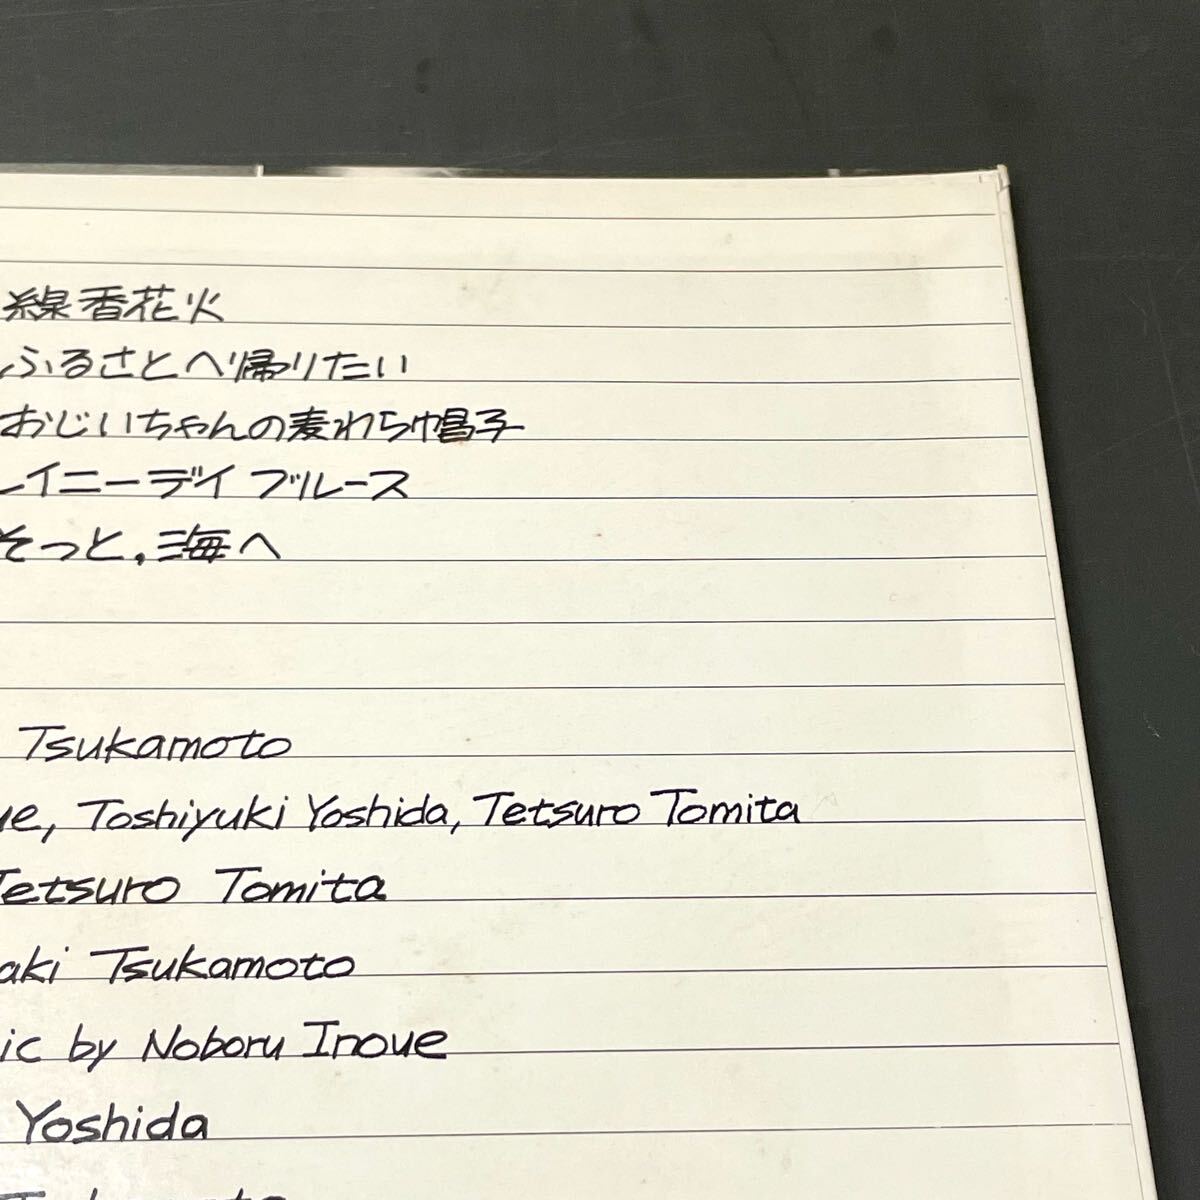 線香花火
ふるさとへ帰りたい
おじいちゃんの麦わら帽子
レイニーデイ ブルース
そっと,海へ
Tsukamoto
ue, Toshiyuki Yoshida, Tetsuro Tomita
Tetsuro Tomita
aki Tsukamoto
ic by Noboru Inoue
Yoshida
Tsukamoto